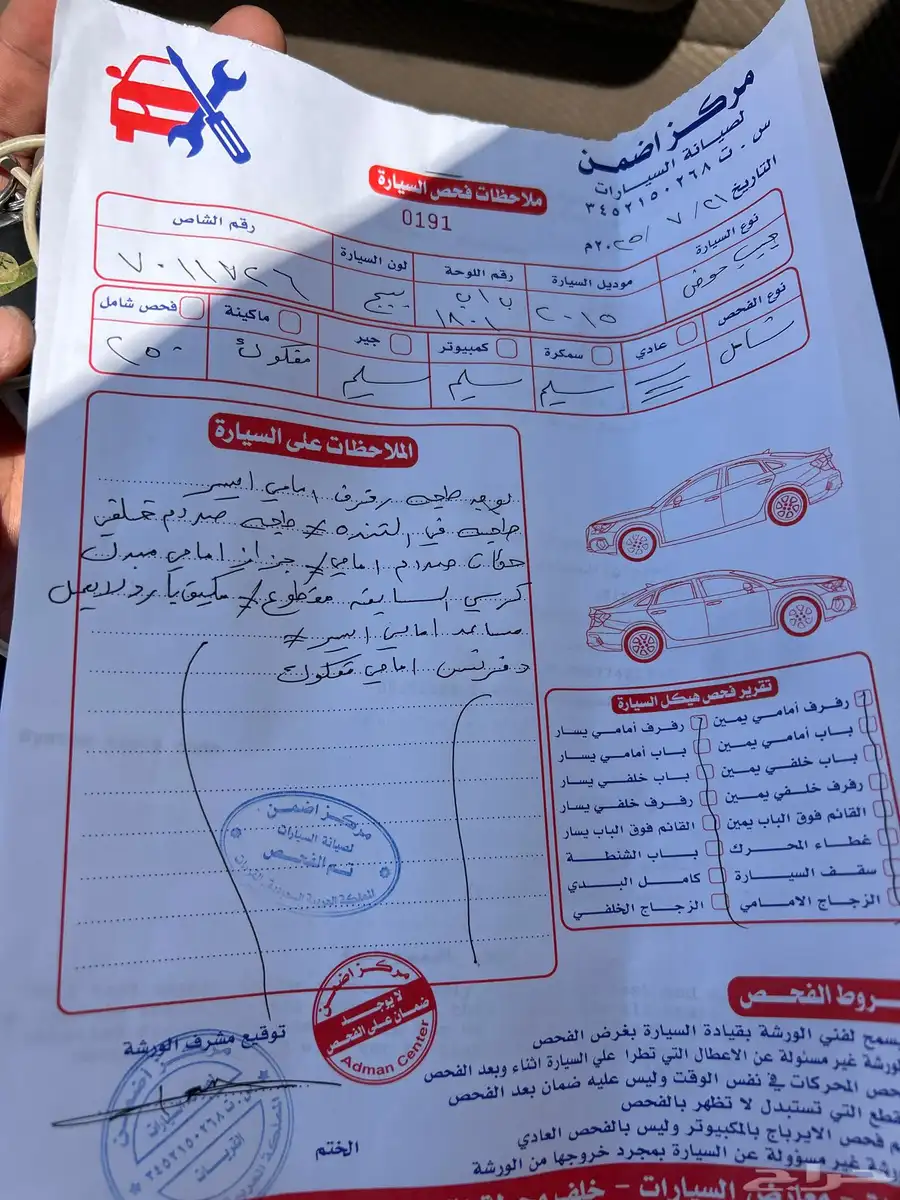 مركز اضمن
لصيانة السيارات
س . ت ٣٤٥٢١٥٠٢٦٨
التاريخ ٢١ / ٧ / ٢٠٢٥م
ملاحظات فحص السيارة
0191
نوع السيارة
موديل السيارة
رقم اللوحة
لون السيارة
رقم الشاص
جيب حوض
٢٠١٥
ب ا ب
١٨٠١
بيج
٧٠١١٧٢٦
نوع الفحص
عادي
سمكرة
كمبيوتر
جير
ماكينة
فحص شامل
شامل
سليم
سليم
سليم
مفكوك
٢٥٠
الملاحظات على السيارة
يوجد طعجه رفرف امامي ايسر
طعجه في التنده × طعجه صدام خلفي
حكات صدام امامي × جزاز امامي مبدل
كرسي السايقه مقطوع × مكيف بارد لا يعمل
مساعد امامي ايسر ×
دفرنس امامي مفكوك
تقرير فحص هيكل السيارة
رفرف أمامي يمين
رفرف أمامي يسار
باب أمامي يمين
باب أمامي يسار
باب خلفي يمين
باب خلفي يسار
رفرف خلفي يمين
رفرف خلفي يسار
القائم فوق الباب يمين
القائم فوق الباب يسار
غطاء المحرك
باب الشنطة
سقف السيارة
كامل البدي
الزجاج الامامي
الزجاج الخلفي
مركز اضمن
لصيانة السيارات
تم الفحص
مركز اضمن
لا يوجد
ضمان على الفحص
Adman Center
توقيع مشرف الورشة
الختم
مركز اضمن
س.ت ٣٤٥٢١٥٠٢٦٨
القريات
روط الفحص
سمح لفني الورشة بقيادة السيارة بغرض الفحص
ورشة غير مسئولة عن الاعطال التي تطرا علي السيارة اثناء وبعد الفحص
حص المحركات في نفس الوقت وليس عليه ضمان بعد الفحص
قطع التي تستبدل لا تظهر بالفحص
م فحص الايرباج بالمكبيوتر وليس بالفحص العادي
رشة غير مسؤولة عن السيارة بمجرد خروجها من الورشة
معارض السيارات - خلف
حراج